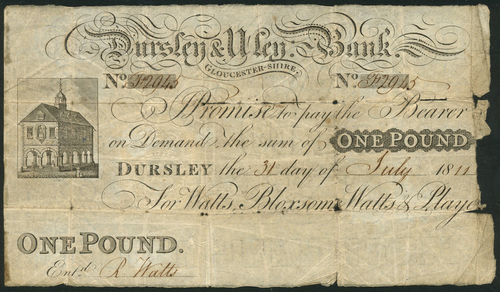 Dursley & Uley Bank.
GLOUCESTER-SHIRE,
No. F2945 No. F2945
I Promise to pay the Bearer
on Demand the sum of ONE POUND
DURSLEY the 31 day of July 1811
For Watts, Bloxsome, Watts & Playe
ONE POUND.
Entd. R Watts